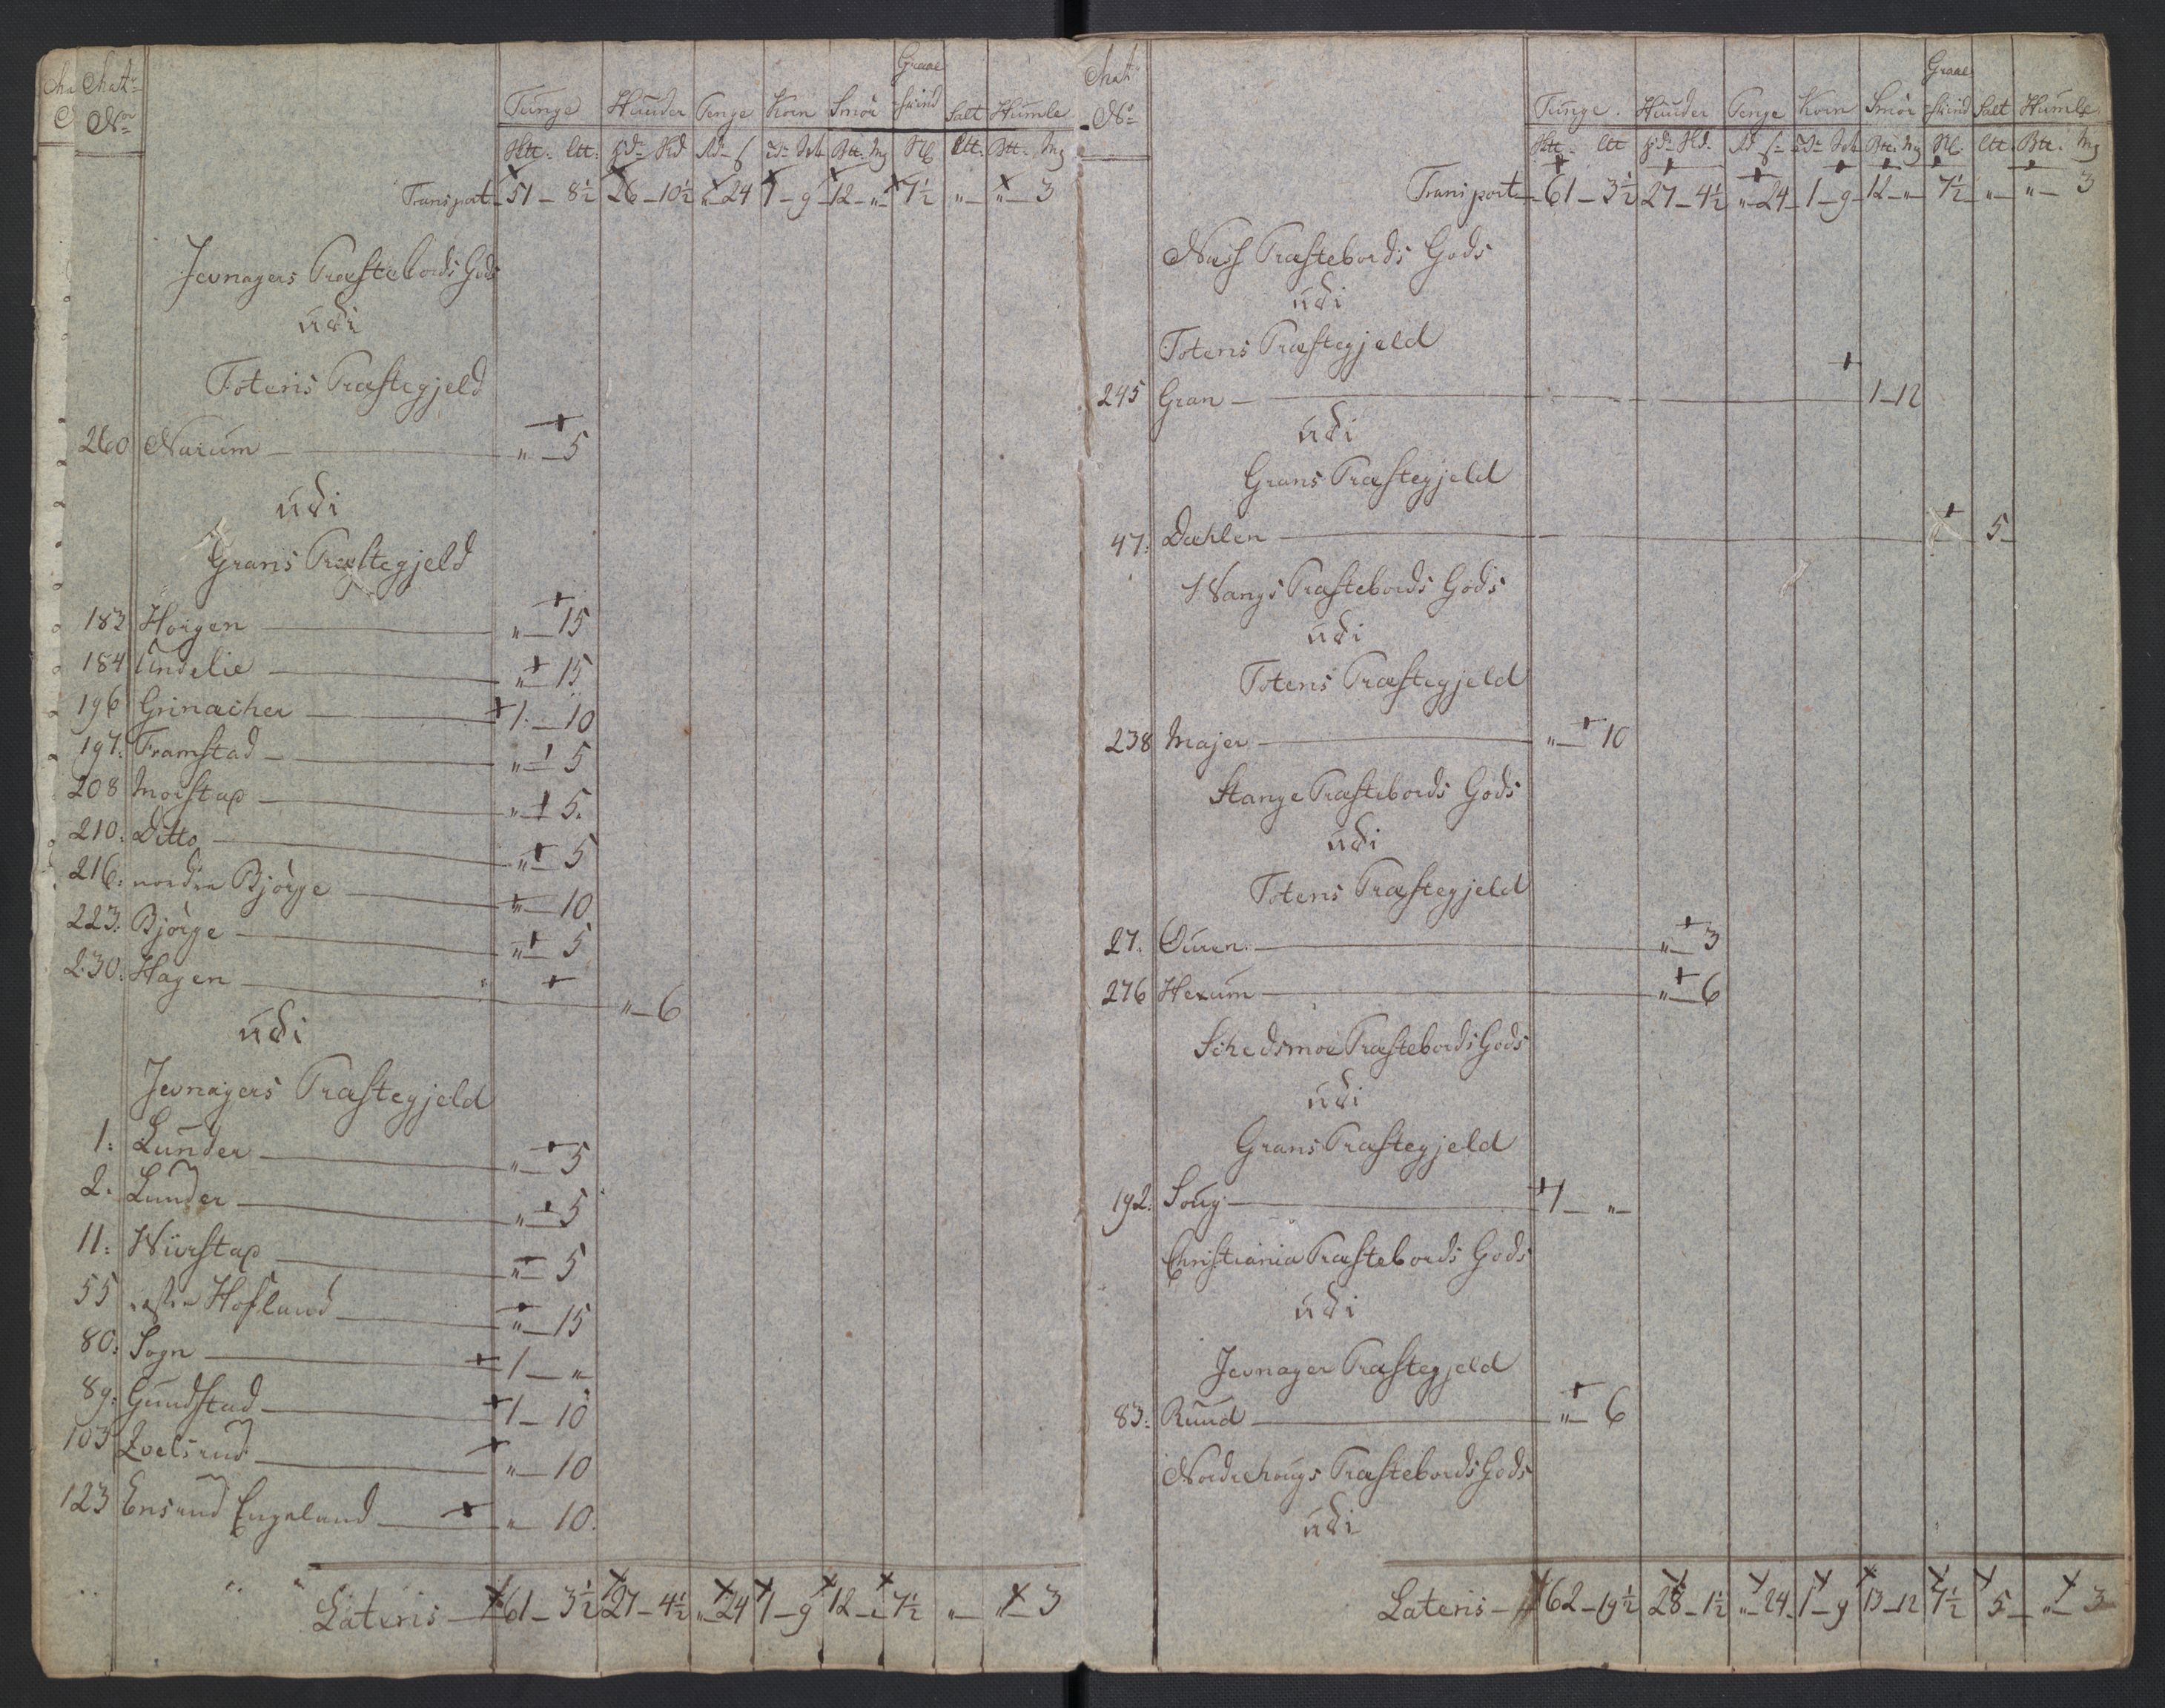 Mat:
No
Tunge Huuder Penge Korn Smör Graae Skind Salt Humle
Skt: Ltt: Hd: Rd ß Td: Btt: Mg St. Ltt. Btt. Mg
Transport 51 - 8½ 26 - 10½ " - 24 1 - 9 12 - " 7½ " - " - 3
Jevnagers Præstebords Gods
udi
Totens Præstegjeld
260 Narum " - 5
udi
Grans Præstegjeld
183 Horgen " - 15
184 Undelie " - 15
196 Grinacher 1 - 10
197. Framstad " - 5
208 Morstap " - 5.
210. Ditto " - 5
216: nordre Bjørge " - 10
223: Bjørge " - 5
230: Hagen " - 6
udi
Jevnagers Præstegjeld
1: Lunder " - 5
2. Lunder " - 5
11: Wiirstap " - 5
55 Hofland " - 15
80: Sogn 1 - "
89: Guudstad 1 - 10
103 " - 10
123 Ensrud Engeland " 10.
Lateris 61 - 3½ 27 - 4½ " - 24 1 - 9 12 - " 7½ " - " - 3
Mat
No
Tunge. Huuder Penge Korn Smör Graae Skind Salt Humle
Skt: Ltt Hd: Rd ß Td: Btt: Mg St. Ltt. Btt. Mg
Transport 61 - 3½ 27 - 4½ " - 24 1 - 9 12 - " 7½ " - " - 3
Næss Præstebords Gods
udi
Totens Præstegjeld
245 Gran 1 - 12
udi
Grans Præstegjeld
47: Dæhlen 5
Wangs Præstebords Gods
udi
Totens Præstegjeld
238 Majer " - 10
Stange Præstebords Gods
udi
Totens Præstegjeld
27. Ouren " - 3
276 Hexum " - 6
Schedsmoe Præstebords Gods
udi
Grans Præstegjeld
192: Soug 1 - "
Christiania Præstebords Gods
udi
Jevnager Præstegjeld
83: Ruud " - 6
Nordrehougs Præstebords Gods
udi
Lateris 62 - 19½ 28 - 1½ " - 24 1 - 9 13 - 12 7½ 5 " - 3